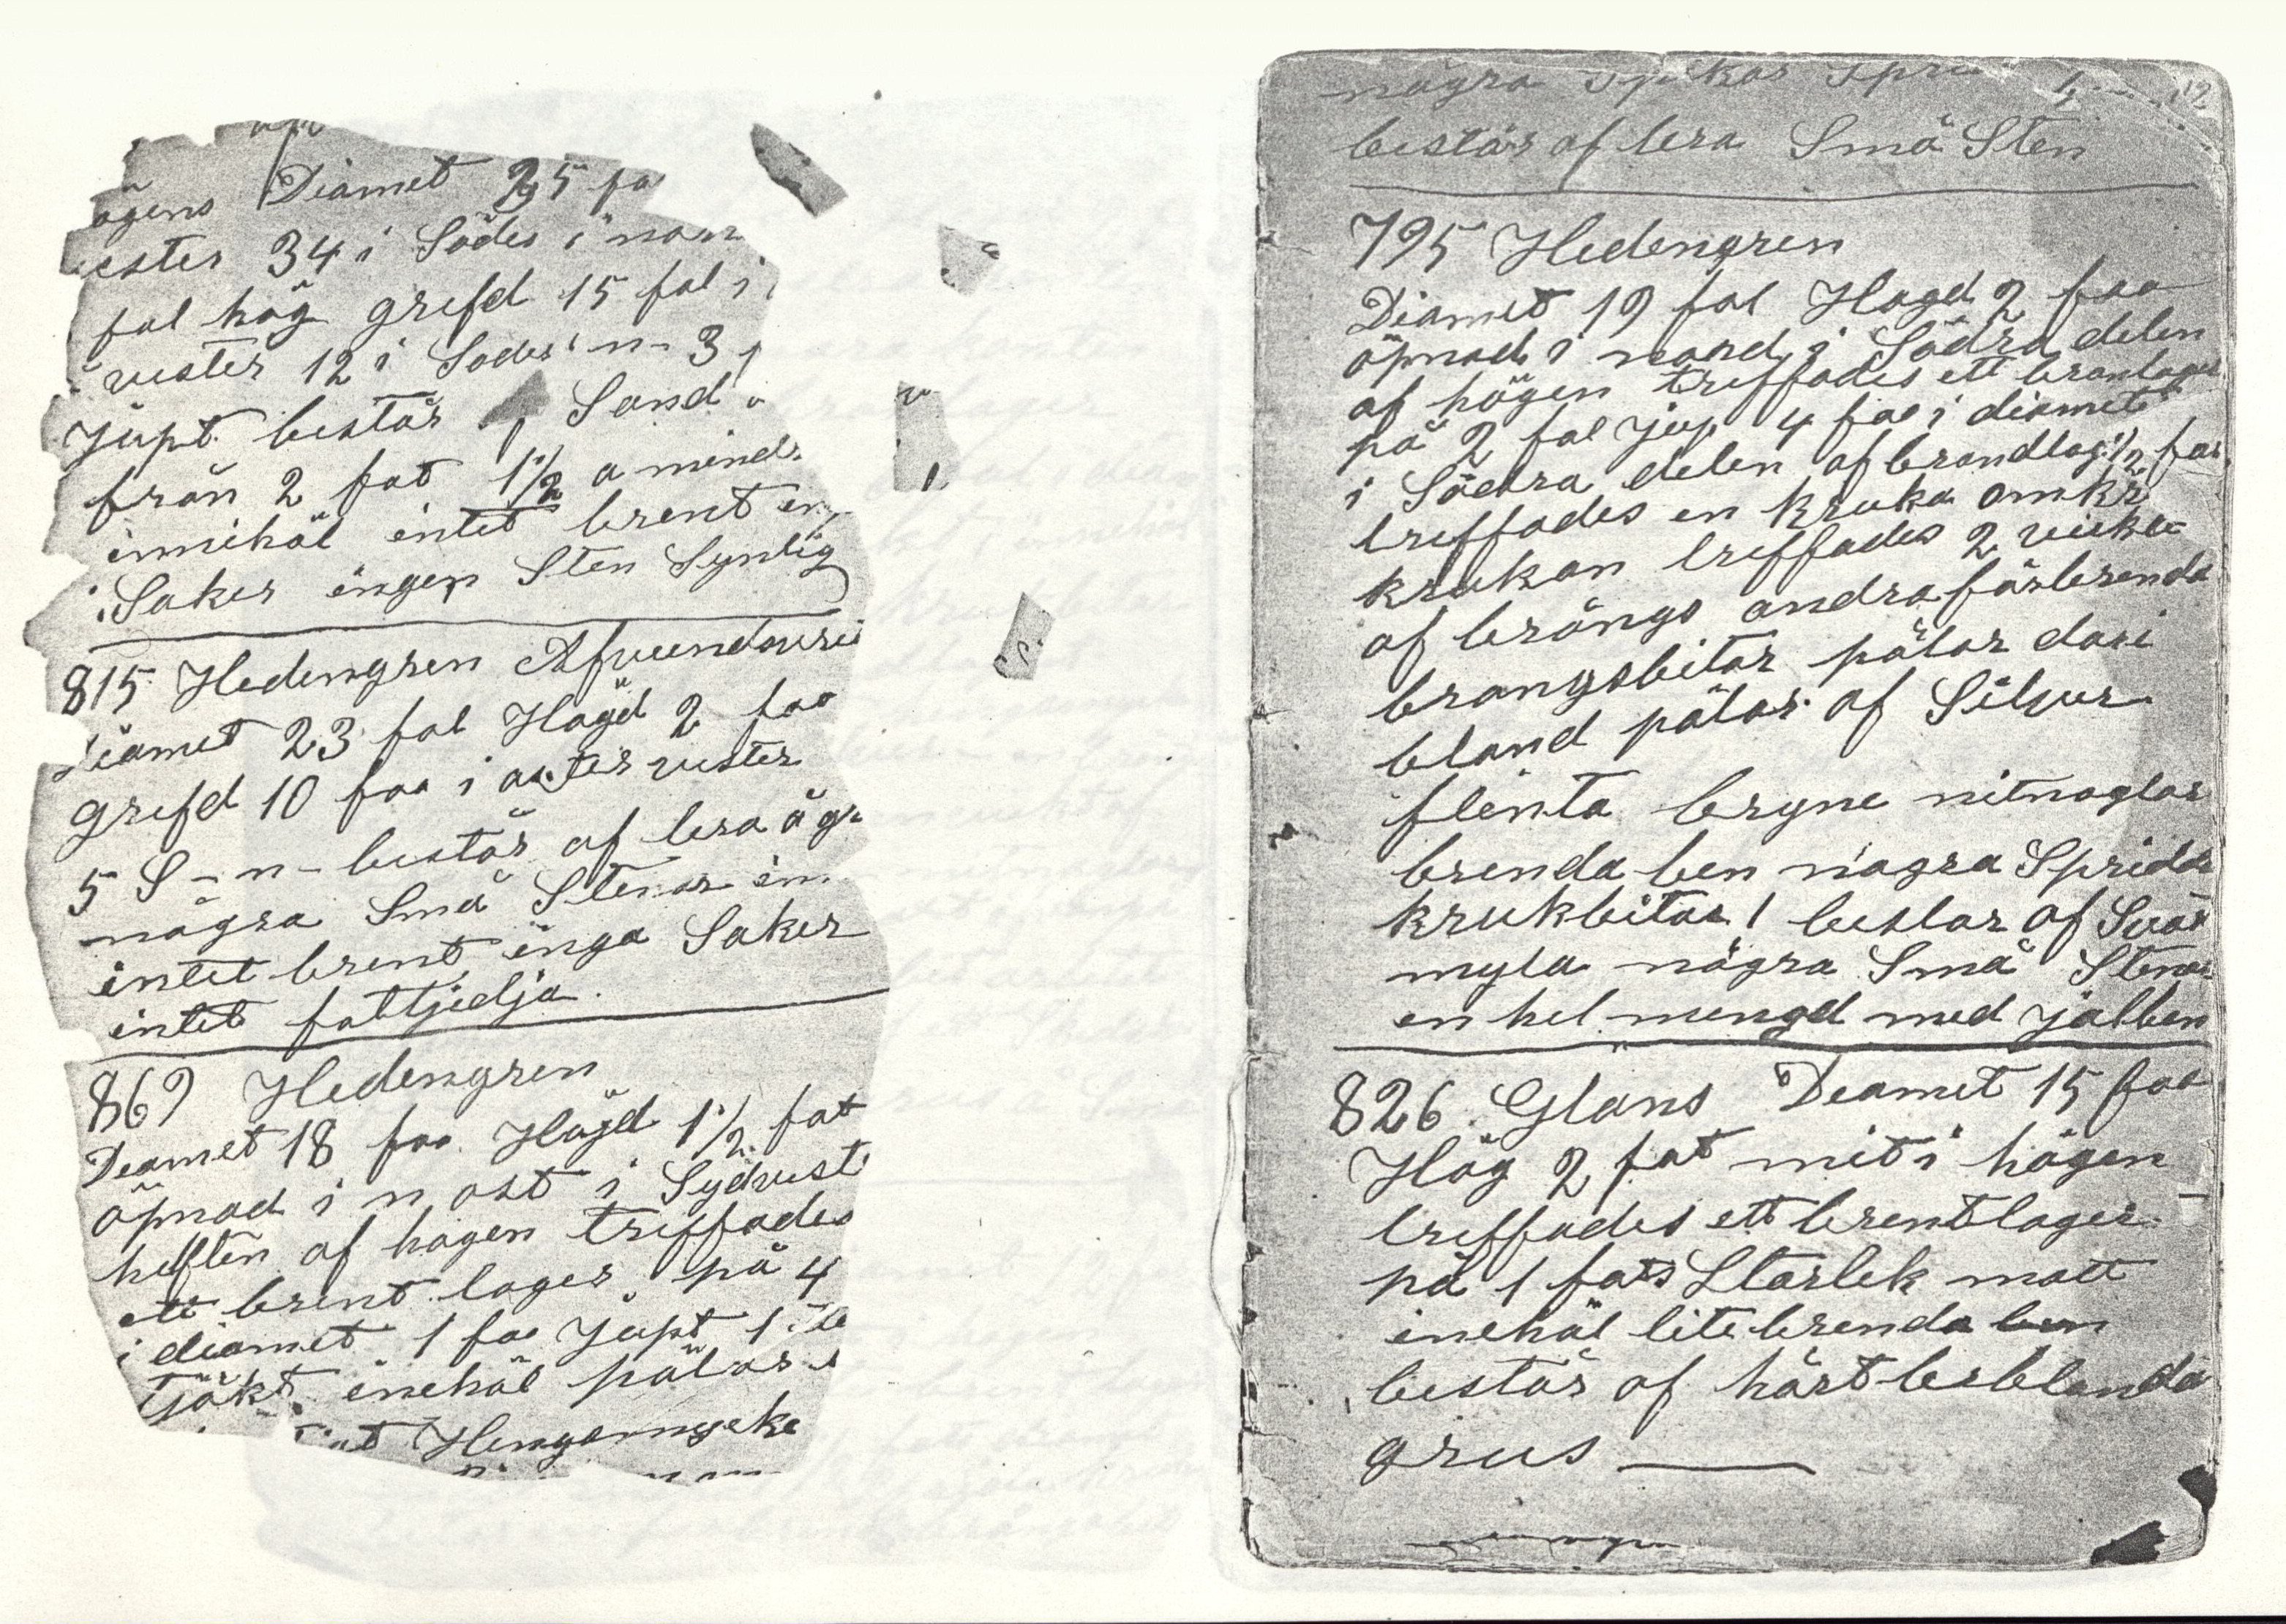 ögens Diamet 25 fo
ester 34 i Söder i norr
fot hög grefd 15 fot i
vester 12 i Söder n- 3
Jupt består Sand
från 2 fot 1 1/2 a mind
innihål intet brent
Saker ingen Sten Synlig
815 Hedengren
Diamet 23 fot Högd 2 foo
grefd 10 foo i aster vester
5 S-n- består af lera ä gr
några Små Stenar in
intet brent inga Saker
intet fottjedja.
869 Hedengren
Deamet 18 foo Högd 1 1/2 fot
öpnad i n ost i Sydvest
helften af hogen treffades
ett brent lager på 4
i diamet 1 foo Jupt 1
tjökt inehål pälar
några Spikar
består af lera Små Sten
795 Hedengren
Diamet 19 fot Hogd 2 foo
öpnad i nord i Södra delen
af högen treffades ett branlager
på 2 fot Jup 4 foo i diamet
i Södra delen af brandlag 1/2 fot
treffades en kruka omkr
krukan treffades 2
af brångs andra förbrenda
brangsbitar pälar
bland pälar af Silver
flinta bryne nitnaglar
brenda ben nagra Sprida
krukbitar 1 bestar af Svar
mylla några Små Stenar
en hel mengd med
826 Glans Deamet 15 foo
Hög 2 fot mit i högen
treffades ett brent lager
på 1 fots Storlek matt
inehål lite brenda ben
består af hårt lerblanda
grus